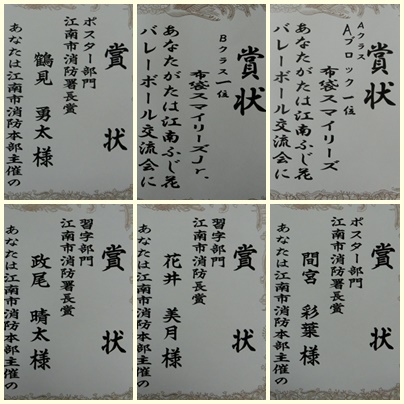 賞状
ポスター部門
江南市消防署長賞
鶴見 勇太 様
あなたは江南市消防本部主催の
賞状
Bクラス一位
布袋スマイリーズJr.
あなたがたは江南ふじ花
バレーボール交流会に
賞状
Aクラス
Aブロック一位
布袋スマイリーズ
あなたがたは江南ふじ花
バレーボール交流会に
賞状
習字部門
江南市消防署長賞
政尾 晴太 様
あなたは江南市消防本部主催の
賞状
習字部門
江南市消防署長賞
花井 美月 様
あなたは江南市消防本部主催の
賞状
ポスター部門
江南市消防署長賞
間宮 彩葉 様
あなたは江南市消防本部主催の